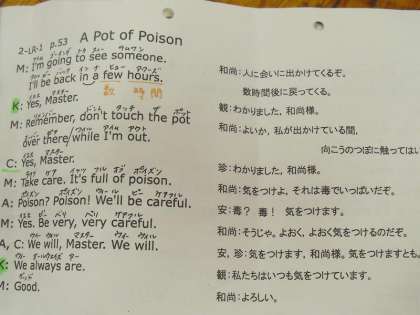 A Pot of Poison
2-LR-1 p.53
M: I'm going to see someone.
I'll be back in a few hours.
数時間
K: Yes, Master.
M: Remember, don't touch the pot
over there while I'm out.
C: Yes, Master.
M: Take care. It's full of poison.
A: Poison? Poison! We'll be careful.
M: Yes. Be very, very careful.
A, C: We will, Master. We will.
K: We always are.
M: Good.
和尚：人に会いに出かけてくるぞ。
数時間後に戻ってくる。
観：わかりました、和尚様。
和尚：よいか、私が出かけている間，
向こうのつぼに触ってはい
珍：わかりました、和尚様。
和尚：気をつけよ、それは毒でいっぱいだぞ。
安：毒？ 毒！ 気をつけます。
和尚：そうじゃ。よおく、よおく気をつけるのだぞ。
安，珍：気をつけます，和尚様。気をつけますとも。
観：私たちはいつも気をつけています。
和尚：よろしい。